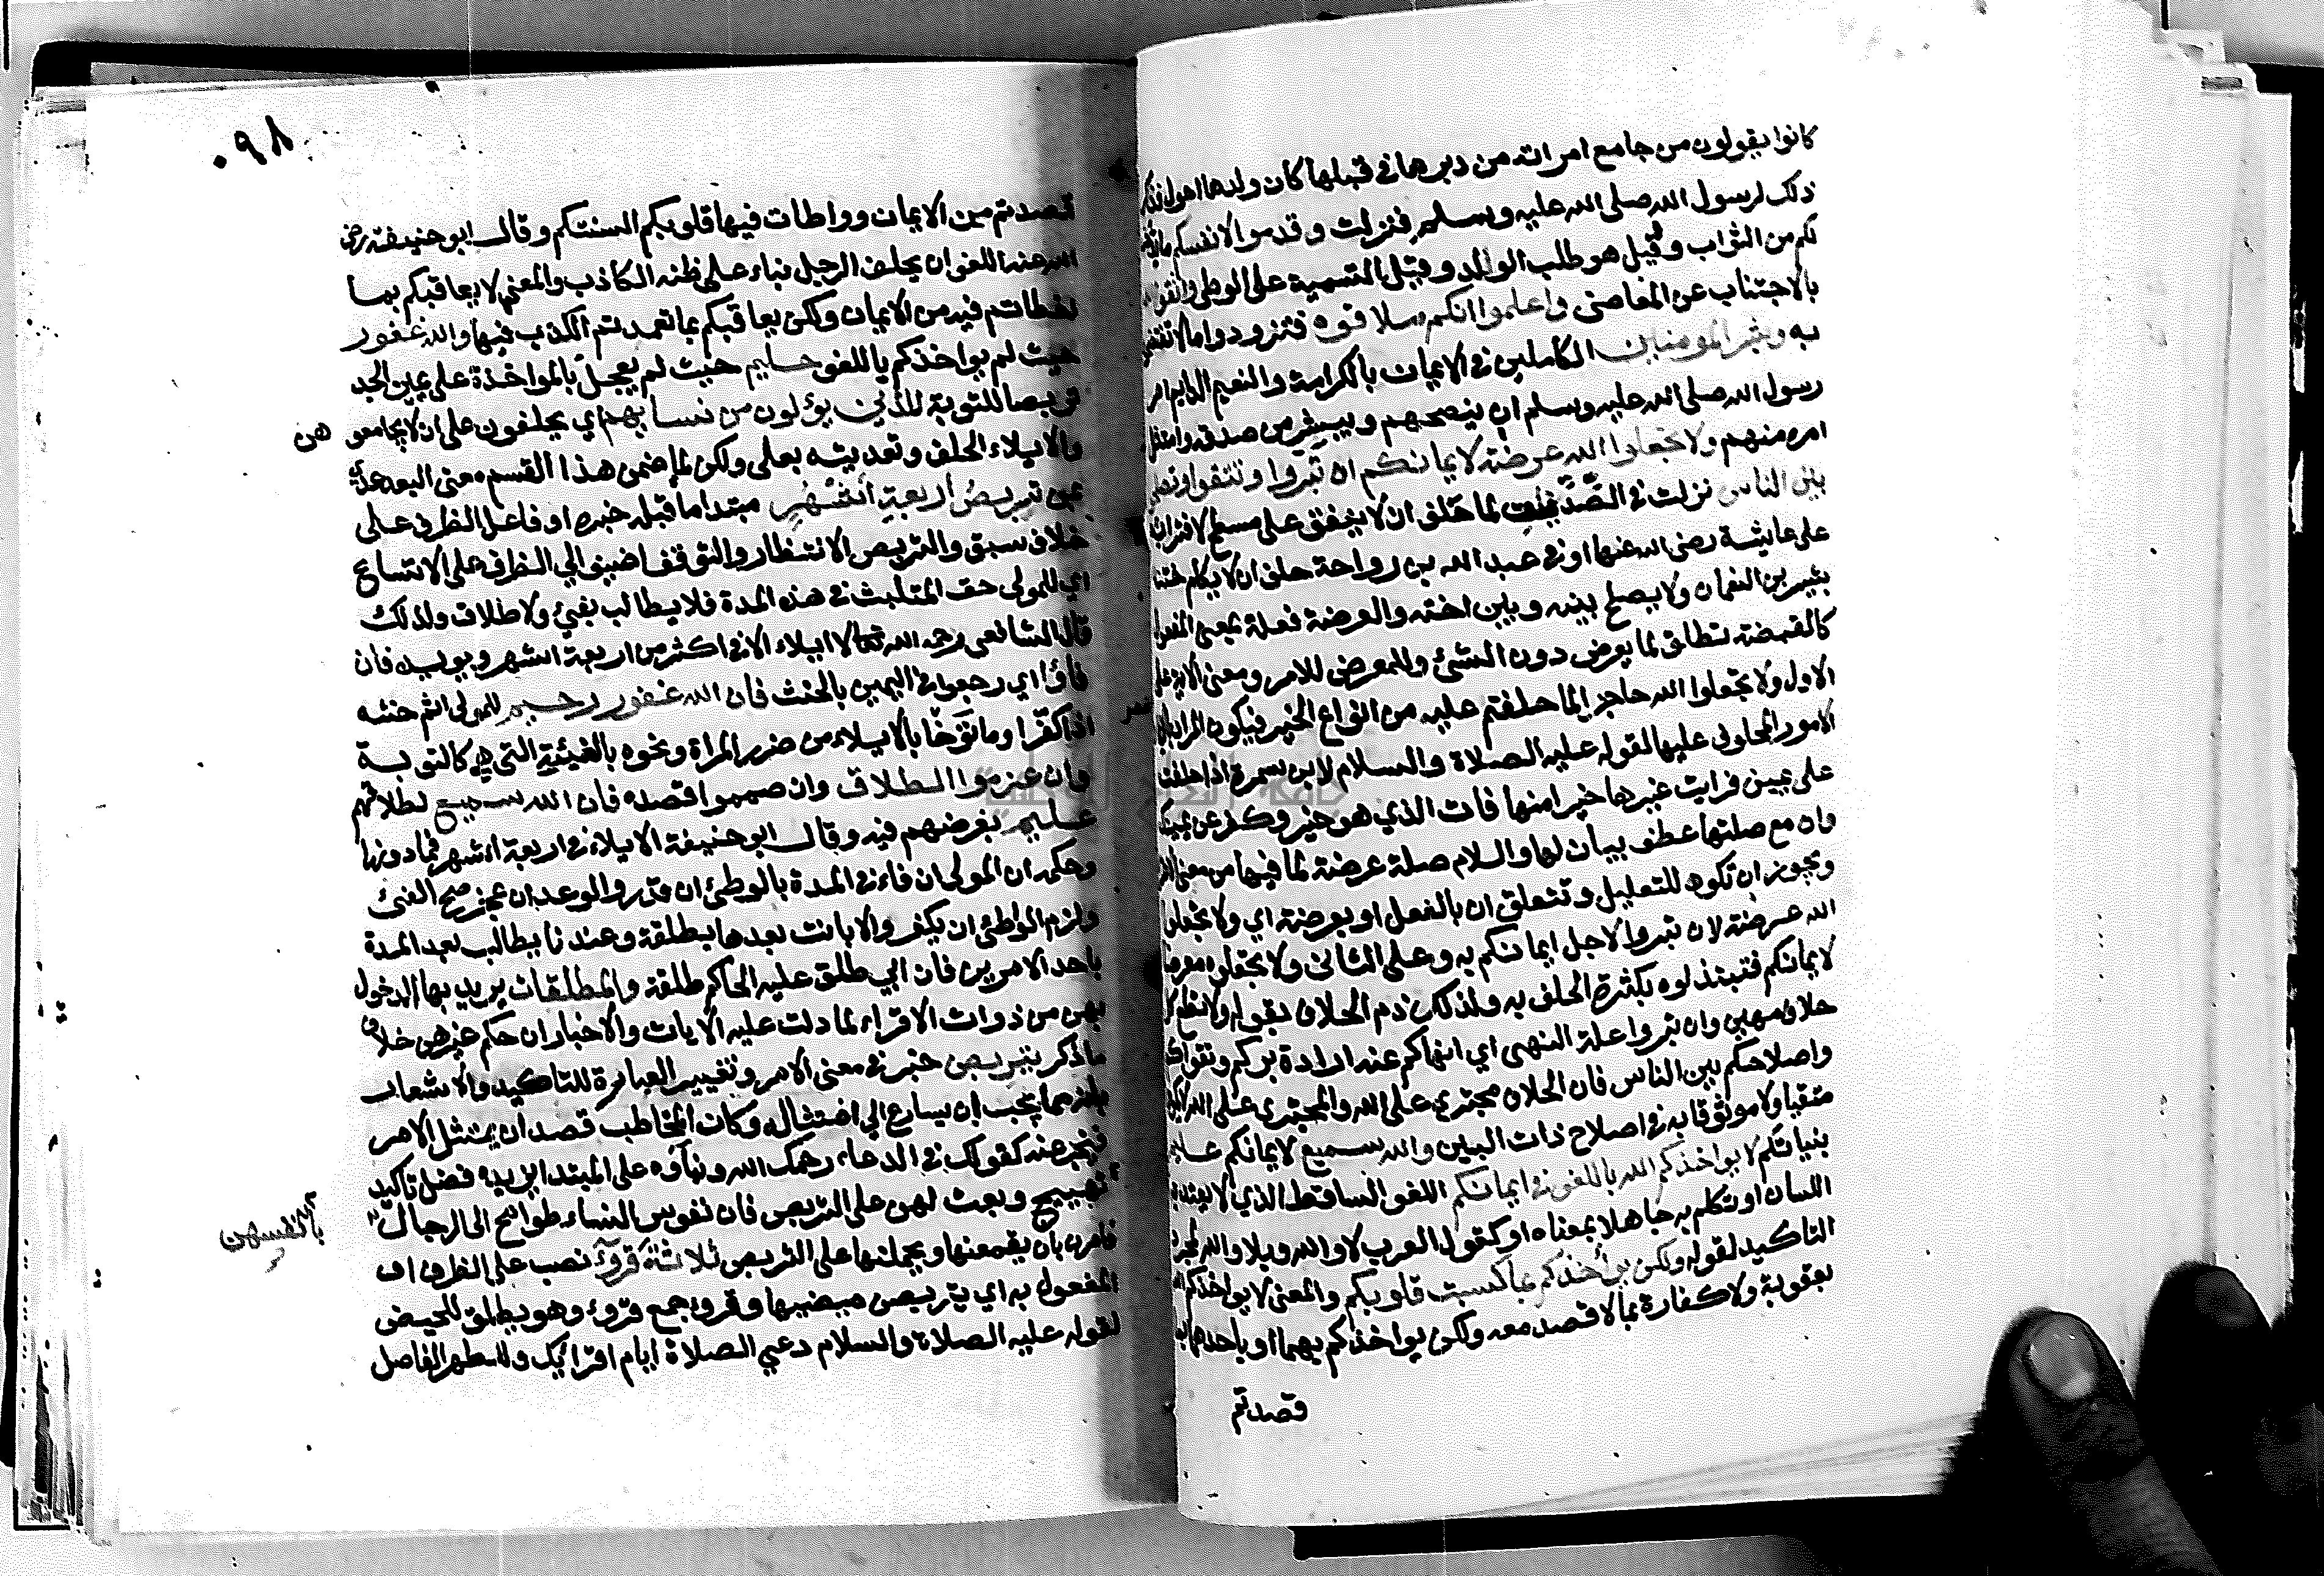 كانوا يقولون من جامع امراته من دبرها في قبلها كان ولدها احول فذكر
ذلك لرسول الله صلى الله عليه وسلم فنزلت وقدموا لانفسكم ما يدخر
لكم من الثواب وقيل هو طلب الولد وقيل التسمية على الوطى واتقوا الله
بالاجتناب عن المعاصى واعلموا انكم ملاقوه فتزودوا ما لا تفتضحون
به وبشر المومنين الكاملين في الايمان بالكرامة والنعيم الدايم امر
رسول الله صلى الله عليه وسلم ان ينصحهم ويبشر من صدقه وامتثل
امره منهم ولا تجعلوا الله عرضة لايمانكم ان تبروا وتتقوا وتصلحوا
بين الناس نزلت في الصديق لما حلف ان لا ينفق على مسطح لافترائه
على عايشة رضى الله عنها او في عبد الله بن رواحة حلف ان لا يكلم ختنه
بشير بن النعمان ولا يصلح بينه وبين اخته والعرضة فعلة بمعنى المفعول
كالقبضة تطلق لما يعرض دون الشئ وللمعرض للامر ومعنى الاية على
الاول ولا تجعلوا الله حاجزا لما حلفتم عليه من انواع الخير فيكون المراد بالايمان
الامور المحلوف عليها لقوله عليه الصلاة والسلام لابن سمرة اذا حلفت
على يمين فرايت غيرها خيرا منها فات الذي هو خير وكفر عن يمينك
وان مع صلتها عطف بيان لها واللام صلة عرضة لما فيها من معنى
ويجوز ان تكون للتعليل وتتعلق ان بالفعل او بعرضة اي ولا تجعلوا
الله عرضة لان تبروا لاجل ايمانكم به وعلى الثانى ولا تجعلوه معرضا
لايمانكم فتبتذلوه بكثرة الحلف به ولذلك ذم الحلاف بقوله ولا تطع كل
حلاف مهين وان تبروا علة النهى اي انهاكم عنه ارادة بركم وتقواكم
واصلاحكم بين الناس فان الحلاف مجترى على الله والمجترى على الله لا يكون
متقيا ولا موثوقا به في اصلاح ذات البين والله سميع لايمانكم عليم
بنياتكم لا يواخذكم الله باللغو في ايمانكم اللغو الساقط الذي لا يعتد به
اللسان او تكلم به جاهلا بمعناه او كقول العرب لا والله وبلا والله لمجرد
التاكيد لقوله ولكن يواخذكم بما كسبت قلوبكم والمعنى لا يواخذكم الله
بعقوبة ولا كفارة بما لا قصد معه ولكن يواخذكم بهما او باحدهما بما
قصدتم
٠٩٨
قصدتم من الايمان وواطات فيها قلوبكم السنتكم وقال ابو حنيفة رضى
الله عنه اللغو ان يحلف الرجل بناء على ظنه الكاذب والمعنى لا يعاقبكم بما
اخطاتم فيه من الايمان ولكن يعاقبكم بما تعمدتم الكذب فيها والله غفور
حيث لم يواخذكم باللغو حليم حيث لم يعجل بالمواخذة على يمين الجد
تربصا للتوبة للذين يؤلون من نسايهم اي يحلفون على ان لا يجامعوهن
والايلاء الحلف وتعديته بعلى ولكن لما ضمن هذا القسم معنى البعد عدي
بمن تربص اربعة اشهر مبتدا ما قبله خبره او فاعل الظرف على
خلاف سبق والتربص الانتظار والتوقف اضيف الي الظرف على الاتساع
اي للمولى حق المتلبث في هذه المدة فلا يطالب بفيئ ولا طلاق ولذلك
قال الشافعى رحمه الله تعالى لا ايلاء الا في اكثر من اربعة اشهر ويويده فان
فاؤا اي رجعوا في اليمين بالحنث فان الله غفور رحيم للمولى اثم حنثه
اذا كفر او ما توخا بالايلاء من ضرر المراة ونحوه بالفيئية التي هي كالتوبة
وان عزموا الطلاق وان صمموا قصده فان الله سميع لطلاقهم
عليم بغرضهم فيه وقال ابو حنيفة الايلاء في اربعة اشهر فما دونها
وحكمه ان المولى ان فاء في المدة بالوطئ ان قدر والوعد ان عجز صح الفئ
ولزم الواطئ ان يكفر والا بانت بعدها بطلقة وعندنا يطالب بعد المدة
باحد الامرين فان ابي طلق عليه الحاكم طلقة والمطلقات يريد بها المدخول
بهن من ذوات الاقراء لما دلت عليه الايات والاخبار ان حكم غيرهن خلاف
ما ذكر يتربصن خبر في معنى الامر وتغيير العبارة للتاكيد والاشعار
بانه مما يجب ان يسارع الي امتثاله وكان المخاطب قصد ان يمتثل الامر
فيخبر عنه كقولك في الدعاء رحمك الله وبناؤه على المبتدا يزيده فضل تاكيد
بانفسهن
تهييج وبعث لهن على التربص فان نفوس النساء طوامح الى الرجال
فامرن بان يقمعنها ويحملنها على التربص ثلاثة قروء نصب على الظرف او
المفعول به اي يتربصن مضيها وقروء جمع قروء وهو يطلق للحيض
لقوله عليه الصلاة والسلام دعي الصلاة ايام اقرائك وللطهر الفاصل